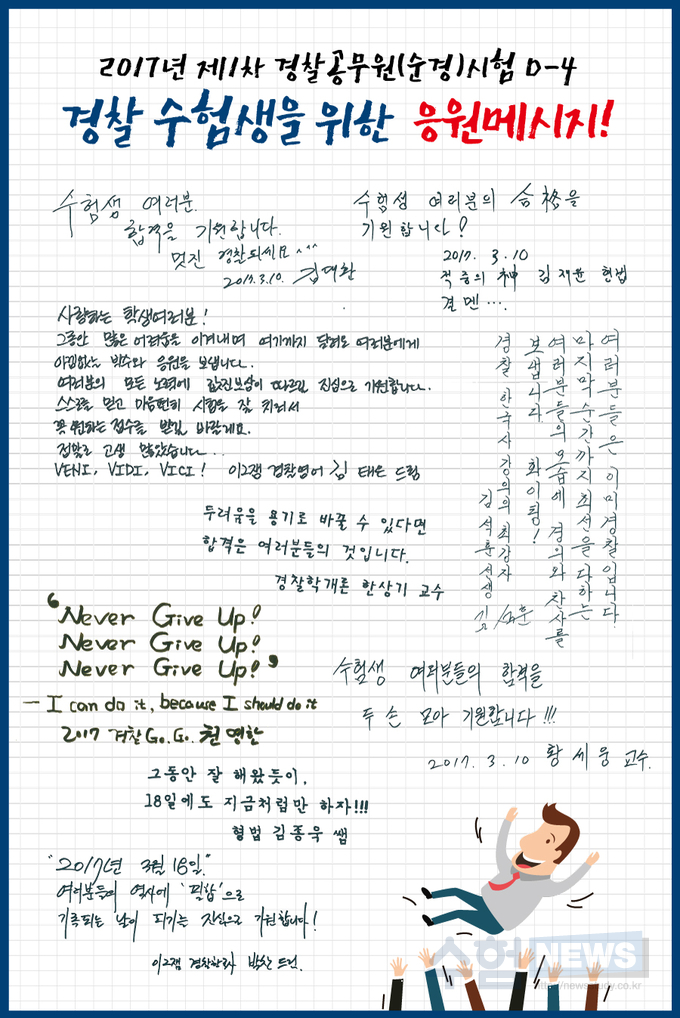 2017년 제1차 경찰공무원(순경)시험 D-4
경찰 수험생을 위한 응원메시지!
수험생 여러분.
합격을 기원합니다.
멋진 경찰되세요^^^
2017.3.10. 김대환
수험생 여러분의 合格을
기원합니다!
2017. 3. 10
적중의 神 김재윤 헌법
결멘···.
사랑하는 학생여러분!
그동안 많은 어려움을 이겨내며 여기까지 달려온 여러분에게
아낌없는 박수와 응원을 보냅니다.
여러분의 모든 노력에 값진보상이 따르길 진심으로 기원합니다.
스스로를 믿고 마음편히 시험을 잘 치러서
꼭 원하는 점수를 받길 바랄게요.
정말로 고생 많았습니다...
VENI, VIDI, VICI! 이그잼 경찰영어 김태은 드림
여러분들은 이미 경찰입니다.
마지막 순간까지 최선을 다하는
여러분들의 모습에 경의와 찬사를
보냅니다. 화이팅!
경찰 한국사 강의의 최강자
김석훈선생 김석훈
두려움을 용기로 바꿀 수 있다면
합격은 여러분들의 것입니다.
경찰학개론 한상기 교수
"Never Give Up!
Never Give Up!
Never Give Up!"
— I can do it, because I should do it
2017 경찰 Go. Go. 천명한
수험생 여러분들의 합격을
두 손 모아 기원합니다!!!
2017. 3. 10 황세웅 교수.
그동안 잘 해왔듯이,
18일에도 지금처럼만 하자!!!
형법 김종욱 쌤
"2017년 3월 18일."
여러분들의 역사에 '필합'으로
기록되는 날이 되기를 진심으로 기원합니다!
이그잼 경찰한국사 박찬 드림.
수험NEWS
http://newsstudy.co.kr